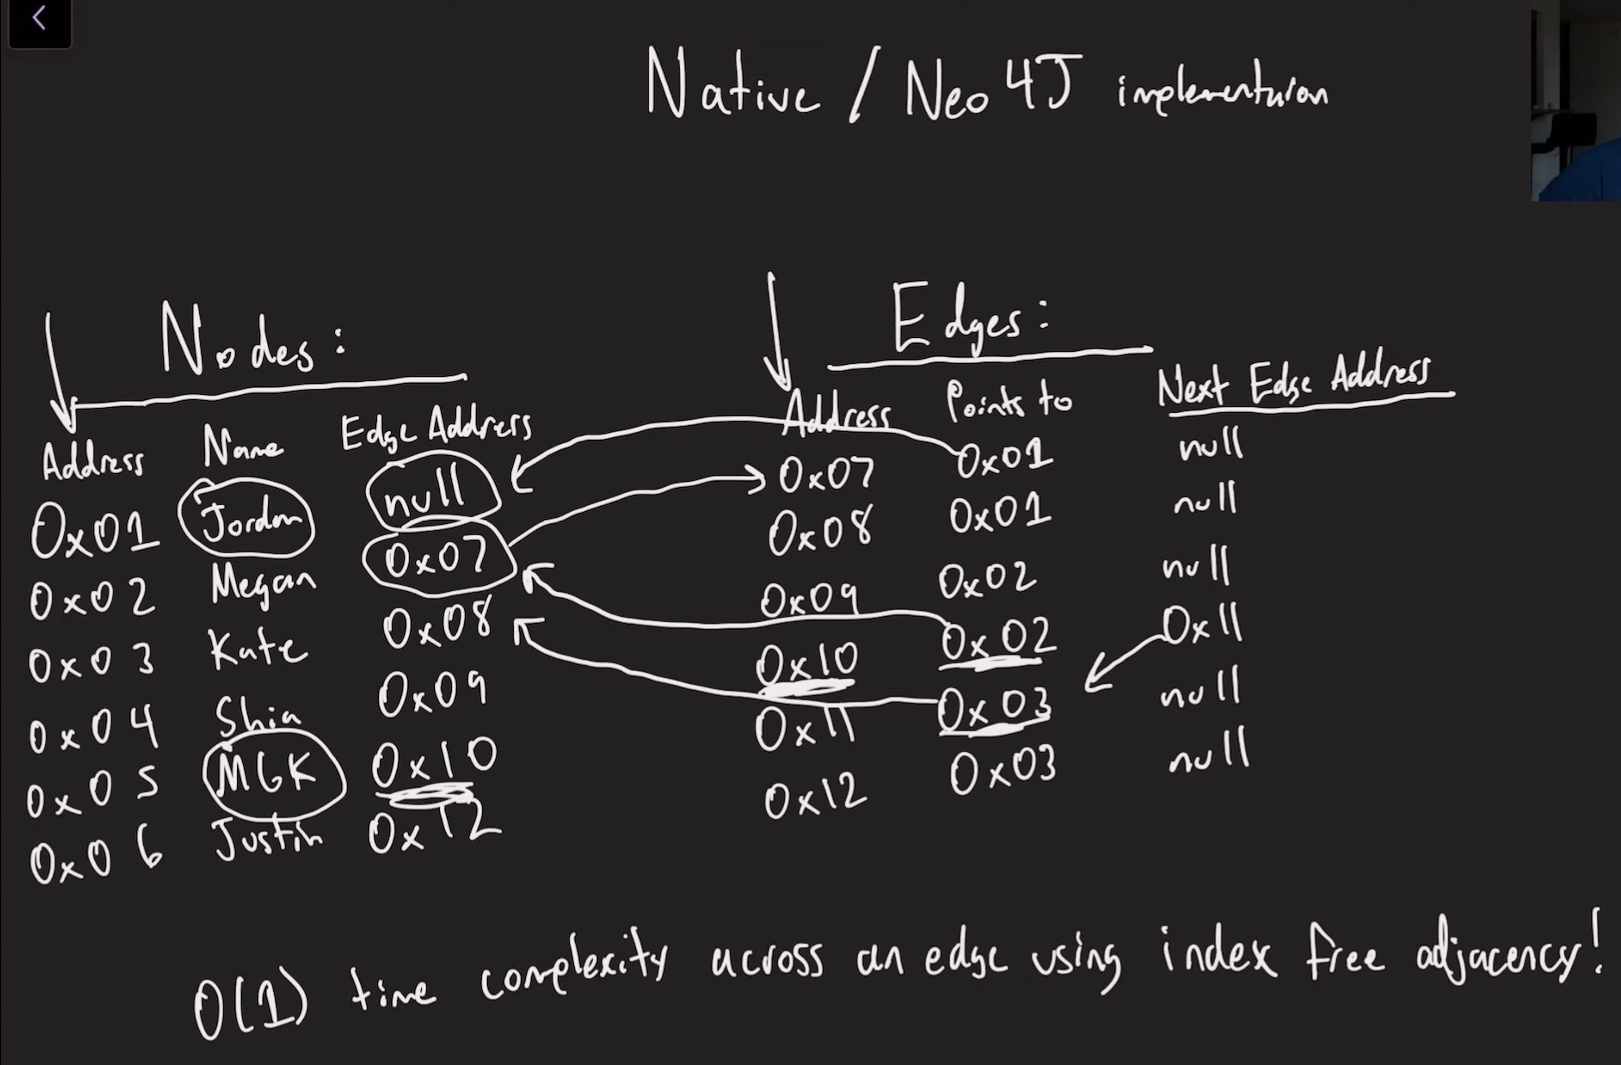 Native / Neo4J implementation
Nodes:
Address Name Edge Address
0x01 Jordan null
0x02 Megan 0x07
0x03 Kate 0x08
0x04 Shia 0x09
0x05 MGK 0x10
0x06 Justin 0x12
Edges:
Address Points to Next Edge Address
0x07 0x01 null
0x08 0x01 null
0x09 0x02 null
0x10 0x02 0x11
0x11 0x03 null
0x12 0x03 null
O(1) time complexity across an edge using index free adjacency!